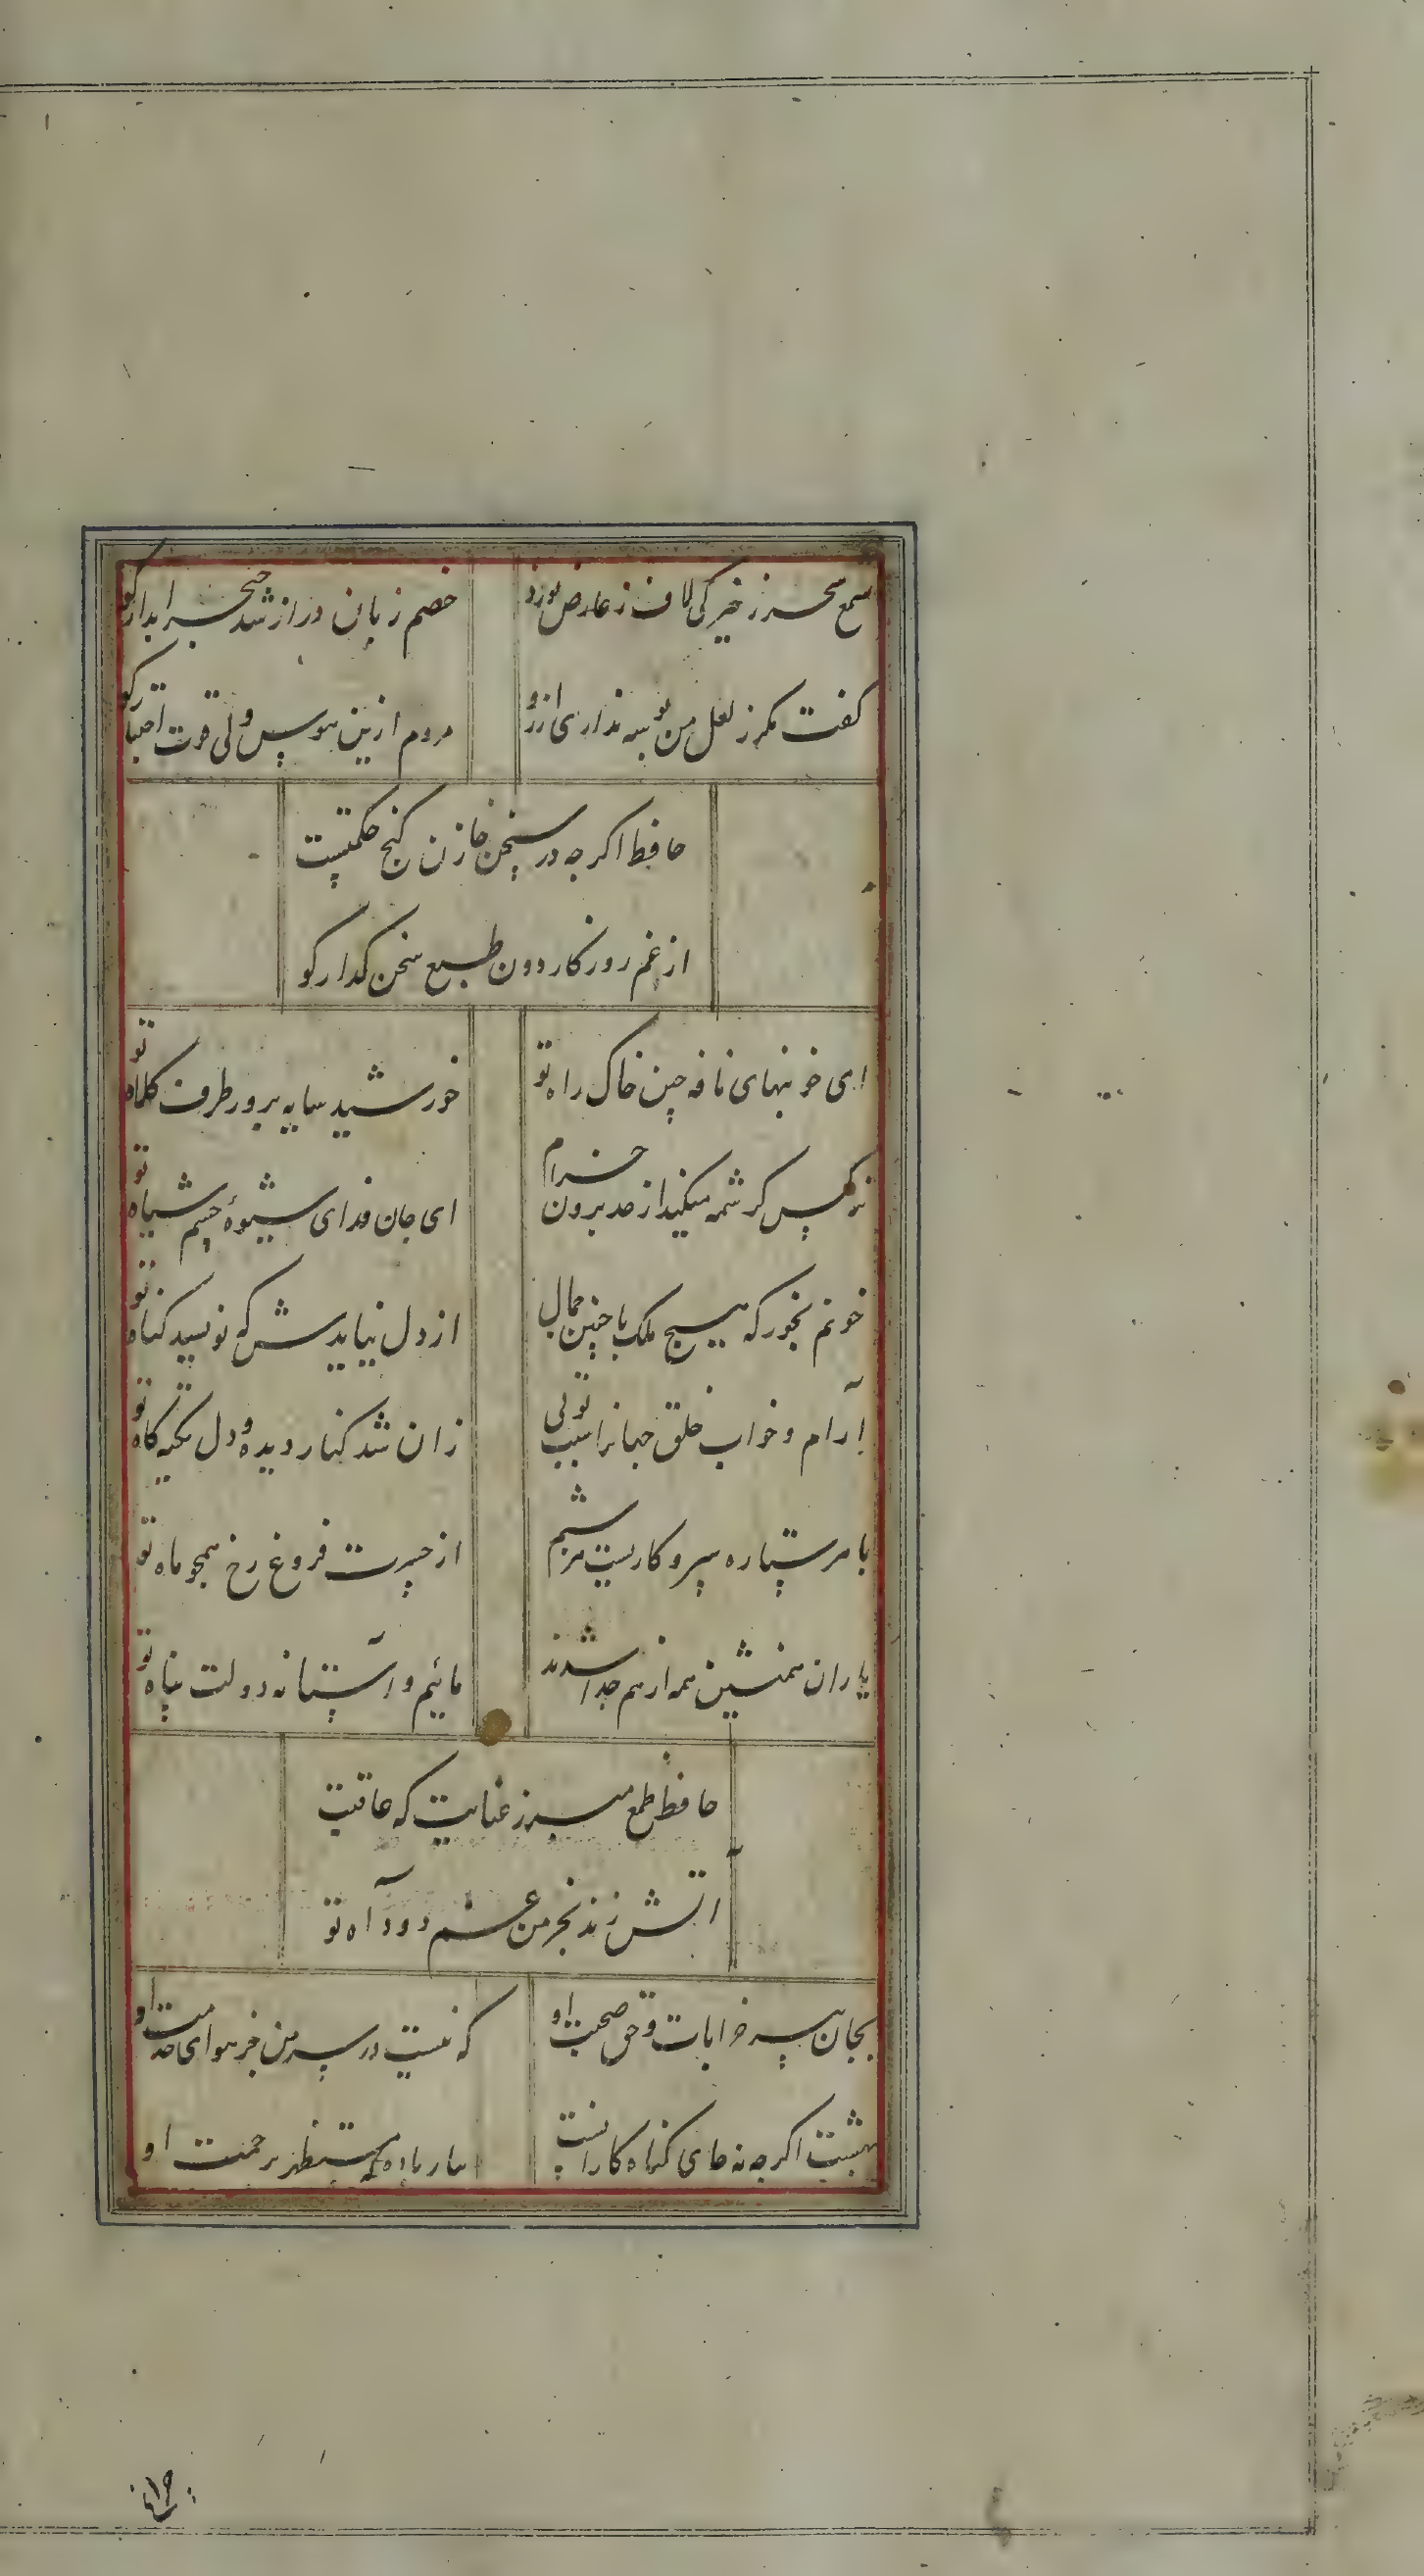 شمع سحر ز خیرکی لاف ز عارض تو زد
خصم زبان دراز شد خنجر ابدار کو
کفت مکر ز لعل من بوسه نداری ارزو
مردم ازین هوس ولی قوت اختیار کو
حافظ اکرچه در سخن خازن کنج حکمتست
از غم روزکار دون طبع سخن کذار کو
ای خونبهای نافه چین خاک راه تو
خورشید سایه پرور طرف کلاه تو
نرکس کرشمه میکند از حد برون خرام
ای جان فدای شیوۀ چشم سیاه تو
خونم بخور که هیچ ملک با چنین جمال
از دل نیایدش که نویسد کناه تو
آرام و خواب خلق جهانرا سبب توئی
زان شد کنار دیده و دل تکیه کاه تو
با هر ستاره سر و کاریست هر شبم
از حسرت فروغ رخ همچو ماه تو
یاران همنشین همه از هم جدا شدند
مائیم و آستانه دولت پناه تو
حافظ طمع مبر ز عنایت که عاقبت
آتش زند بخرمن غم دود آه تو
بجان پیر خرابات و حق صحبت او
که نیست در سر من جز هوای خدمت او
بهشت اکرچه نه جای کناه کارانست
بیار باده که مستظهرم برحمت او